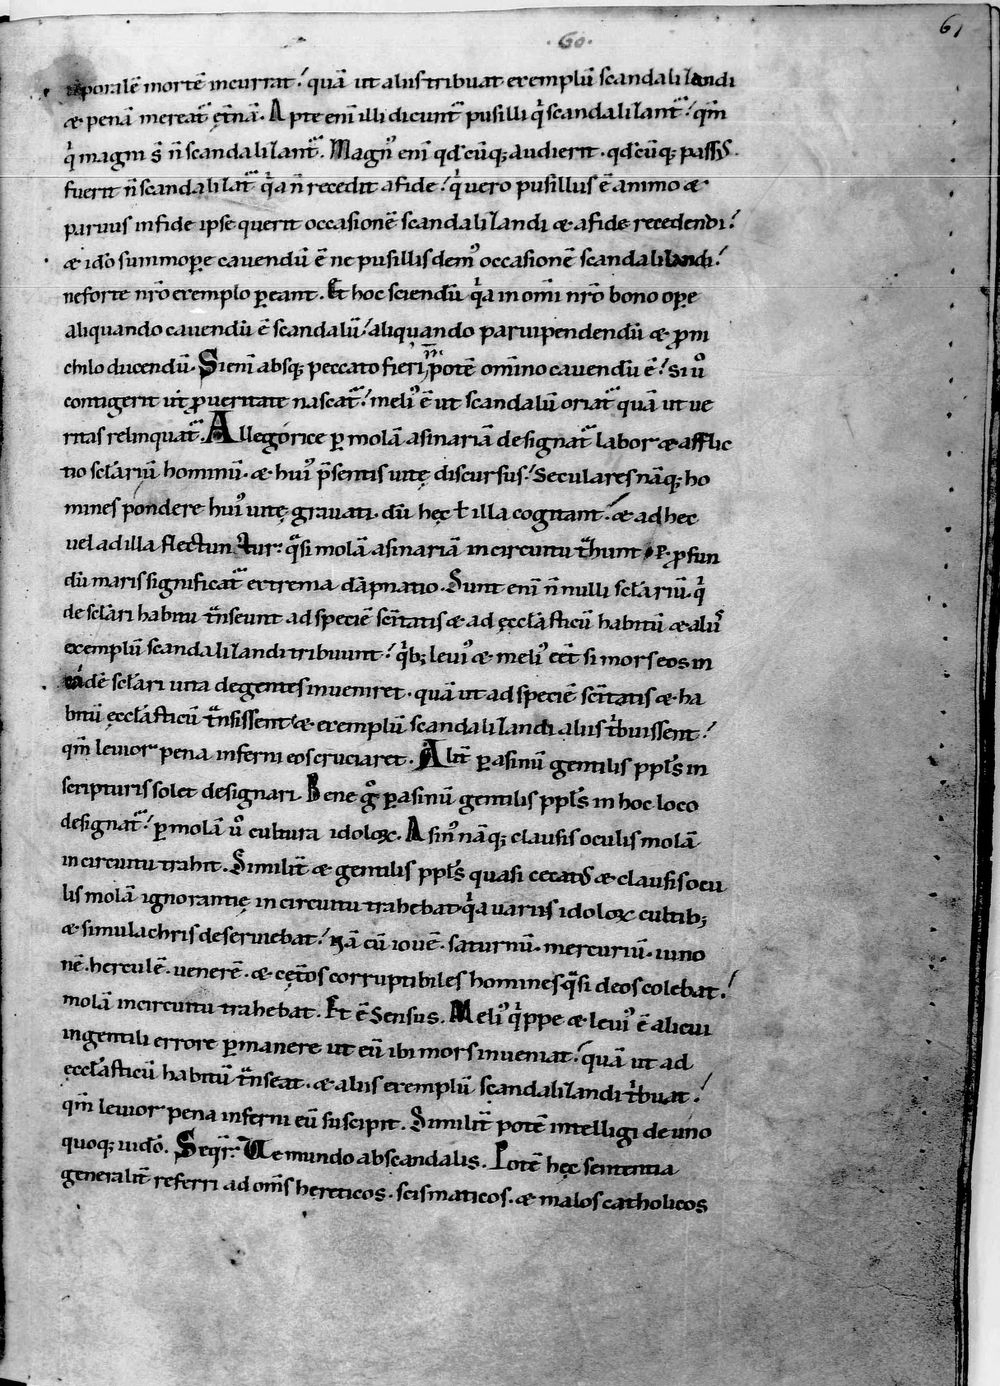 · 60 ·
61
te͂poralē mortē incurrat! quā ut aliis tribuat exemplū scandalizandi
& penā mereat᷑ ęt̄nā. Apte eni͂ illi dicunt᷑ pusilli qͥ scandalizant᷑! qm̄
qͥ magni s̄ n̄ scandalizant᷑. Magn᷒ eni͂ qdcūq; audierit · qdcūq; pass᷒
fuerit n̄ scandalizat᷑ qͥa n̄ recedit a fide! qͥ uero pusillus ē animo &
paruus in fide ipse querit occasionē scandalizandi & a fide recedendi!
& iđo summoꝑe cauendū ē ne pusillis dem᷒ occasionē scandalizandi!
ne forte nr̄o exemplo ꝑeant. Et hoc sciendū qͥa in om̄i nr̄o bono oꝑe
aliquando cauendū ē scandalū! aliquando paruipendendū & ꝓ ni
chilo ducendū. Si eni͂ absq; peccato fieri n̄ potē omīno cauendū ē! si u͛
contigerit ut ꝓ ueritate nascat᷑! meli᷒ ē ut scandalū oriat᷑ quā ut ue
ritas relinquat᷑. Allegorice ꝑ molā asinariā designat᷑ labor & afflic
tio sclariū hominū · & hui᷒ p̄sentis uitę discursus! Seculares nāq; ho
mines pondere hui᷒ uitę grauati · dū hęc ł illa cogitant! & ad hęc
uel ad illa flectuntur: qͣsi molā asinariā in circuitu tͣhunt · Ꝑ ꝓfun
dū maris significat᷑ extrema dāpnatio. Sunt eni͂ n̄nulli sclariū · qͥ
de sclari habitu tͣnseunt ad speciē sc̄itatis & ad ęcclasticū habitū & aliis
exemplū scandalizandi tribuunt! qͥb; leui᷒ & meli᷒ eēt si mors eos in
eadē sclari uita degentes inueniret · quā ut ad speciē sc̄itatis & ha
bitū ęcclasticū tͣnsissent & exemplū scandalizandi aliis tͥbuissent!
qm̄ leuior pena inferni eos cruciaret. Alit̄ ꝑ asinū gentilis ppls̄ in
scripturis solet designari. Bene gͦ ꝑ asinū gentilis ppls̄ in hoc loco
designat᷑! ꝑ molā u͛ cultura idoloꝝ. Asin᷒ nāq; clausis oculis molā
in circuitu trahit. Similit̄ & gentilis ppls̄ quasi cecat᷒ & clausis ocu
lis molā ignorantię in circuitu trahebat qͥa uariis idoloꝝ cultib;
& simulachris deseruiebat! Nā cū iouē · saturnū · mercuriū · iuno
nē · herculē · uenerē · & cęt̄os corruptibiles homines qͣsi deos colebat!
molā in circuitu trahebat. Et ē sensus. Meli᷒ qͥppe & leui᷒ ē alicui
in gentili errore ꝑmanere ut eū ibi mors inueniat! quā ut ad
ęcclasticū habitū tͣnseat · & aliis exemplū scandalizandi tͥbuat!
qm̄ leuior pena inferni eū suscipit. Similit̄ potē intelligi de uno
quoq; uiđo. Seqͥr: Ue mundo ab scandalis. Potē hęc sententia
generalit̄ referri ad om̄s hereticos · scismaticos · & malos catholicos